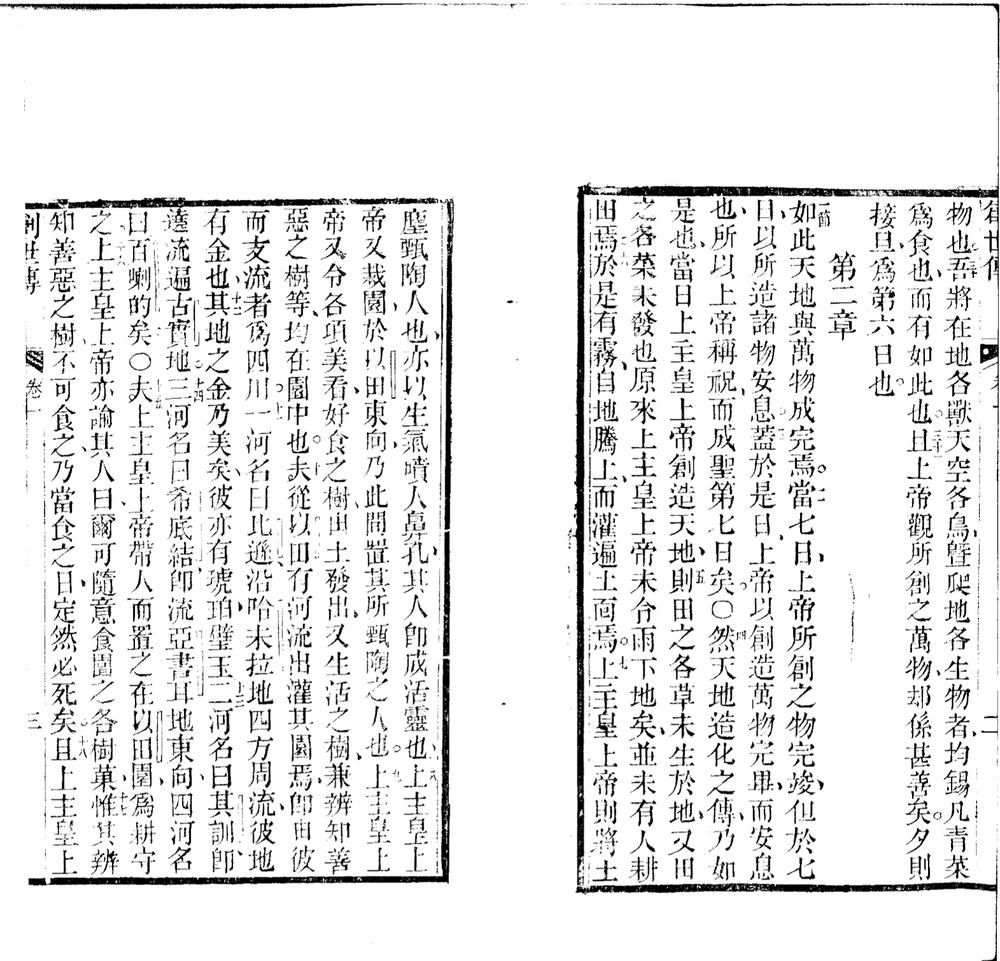 創世傳
二
物也吾將在地各獸天空各鳥曁爬地各生物者均錫凡青菜
爲食也而有如此也三十一且上帝觀所創之萬物却係甚善矣夕則
接旦爲第六日也
第二章
一節如此天地與萬物成完焉二當七日上帝所創之物完竣但於七
日以所造諸物安息蓋於是日上帝以創造萬物完畢而安息
也所以上帝稱祝而成聖第七日矣〇四然天地造化之傳乃如
是也當日上主皇上帝創造天地五則田之各草未生於地又田
之各菜未發也原來上主皇上帝未令雨下地矣並未有人耕
田焉六於是有霧自地騰上而灌遍土面焉七上主皇上帝則將土
塵甄陶人也亦以生氣噴人鼻孔其人卽成活靈也八上主皇上
帝又栽園於以田東向乃此間置其所甄陶之人也九上主皇上
帝又令各項美看好食之樹由土發出又生活之樹兼辨知善
惡之樹等均在園中也十夫從以田有河流出灌其園焉卽由彼
而支流者爲四川十一一河名曰比遜沿哈未拉地四方周流彼地
有金也十二其地之金乃美矣彼亦有琥珀璧玉十三二河名曰其訓卽
遶流遍古實地十四三河名曰希底結卽流亞書耳地東向四河名
曰百喇的矣〇十五夫上主皇上帝帶人而置之在以田園爲耕守
之十六上主皇上帝亦諭其人曰爾可隨意食園之各樹菓十七惟其辨
知善惡之樹不可食之乃當食之日定然必死矣十八且上主皇上
創世傳
卷一
三